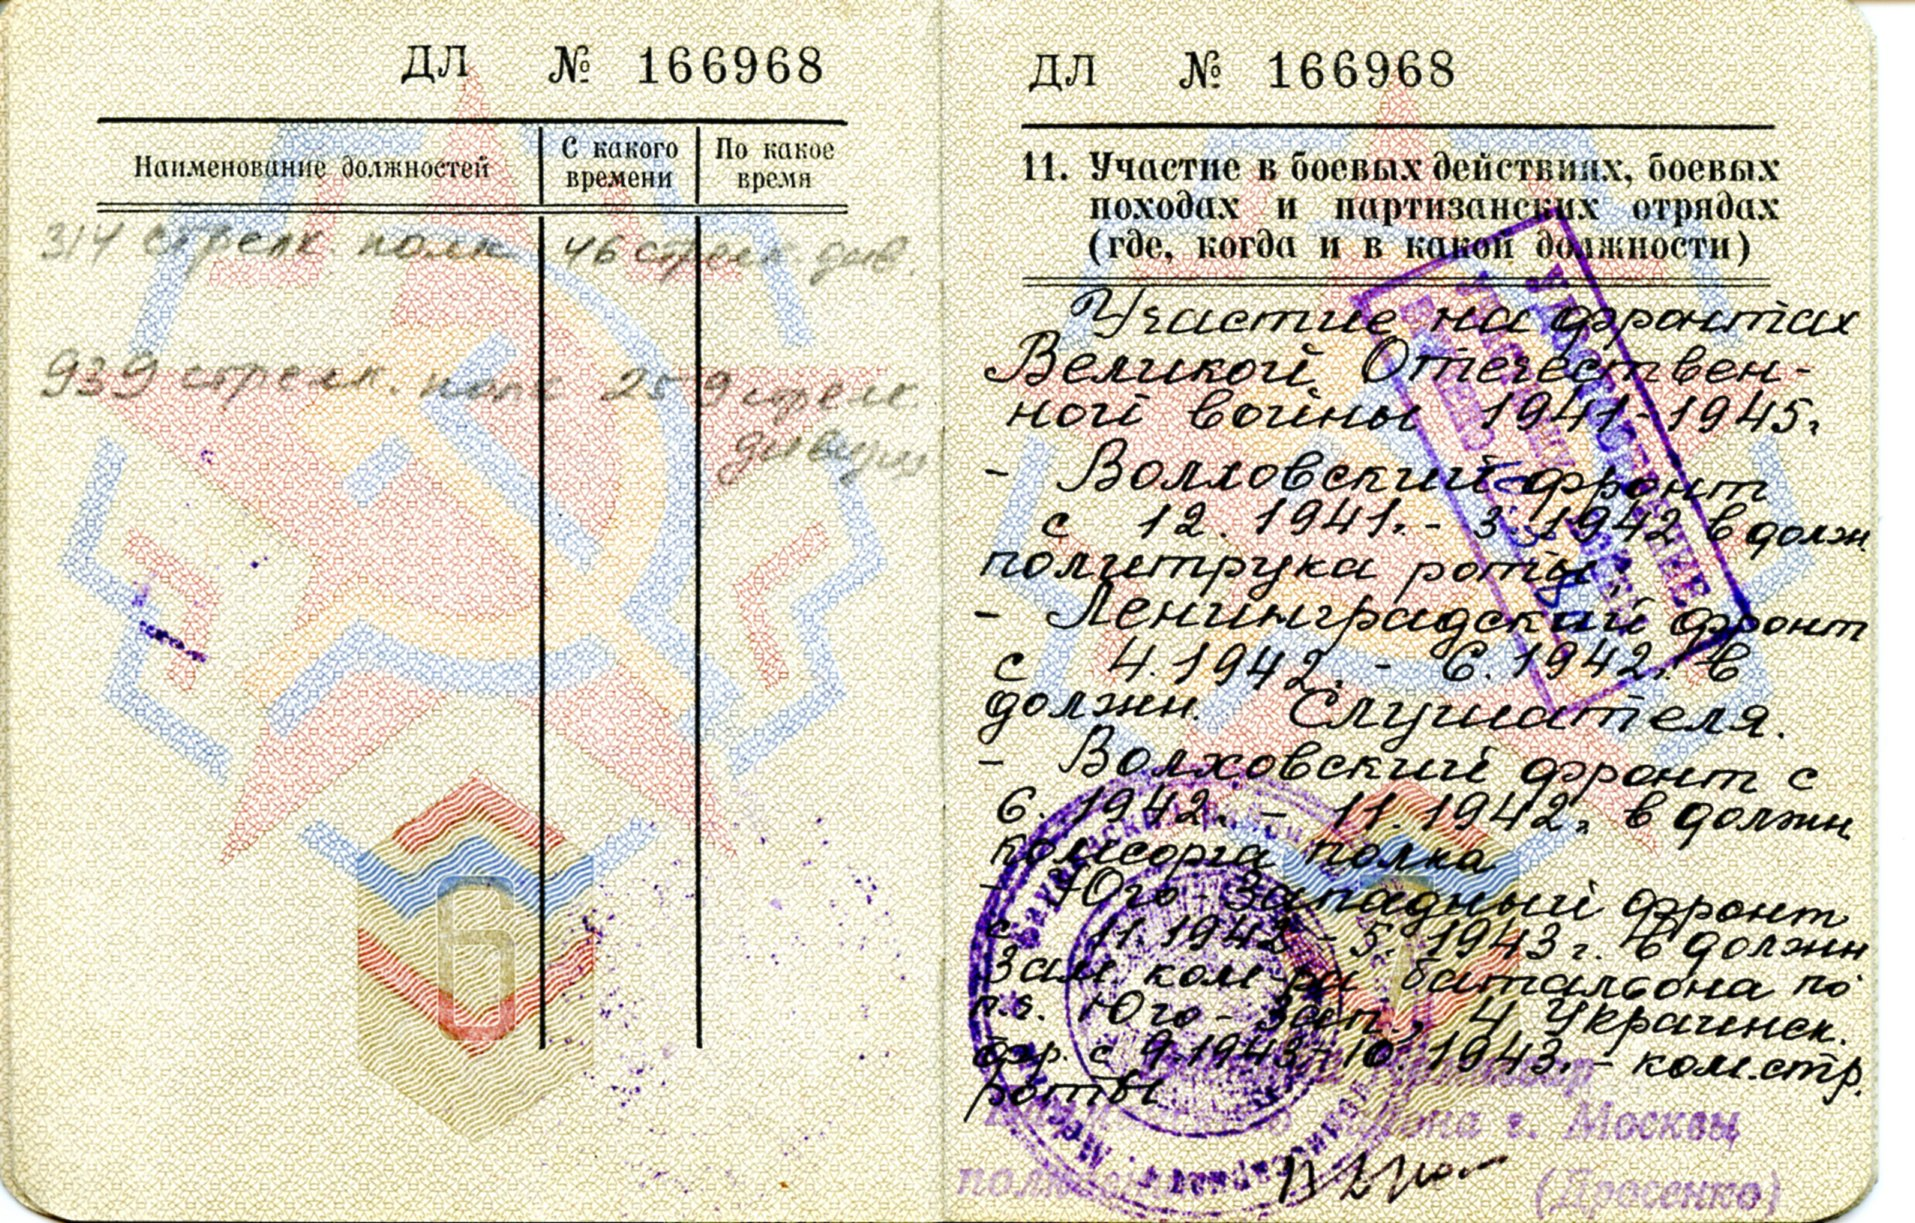 ДЛ № 166968
Наименование должностей
С какого времени
По какое время
314 стрелк полк 46 стрелк. див.
939 стрелк. полк 259 стрелк
дивизии
6
ДЛ № 166968
11. Участие в боевых действиях, боевых
походах и партизанских отрядах
(где, когда и в какой должности)
Участие на фронтах
Великой Отечествен-
ной войны 1941-1945г
- Волховский фронт
с 12. 1941. - 3. 1942 в должн
политрука роты.
- Ленинградский фронт
с 4. 1942. - 6. 1942. в
должн. Слушателя.
- Волховский фронт с
6. 1942. - 11. 1942. в должн
комсорга полка
- Юго-Западный фронт
с 11. 1942 - 5. 1943 г. в должн
Зам ком-ра батальона по
п.ч. Юго-Зап., 4 Украинск.
фр. с 9.1943 - 10. 1943. - ком.стр.
роты
УДОСТОВЕРЕНИЕ
района г. Москвы
(Дросенко)